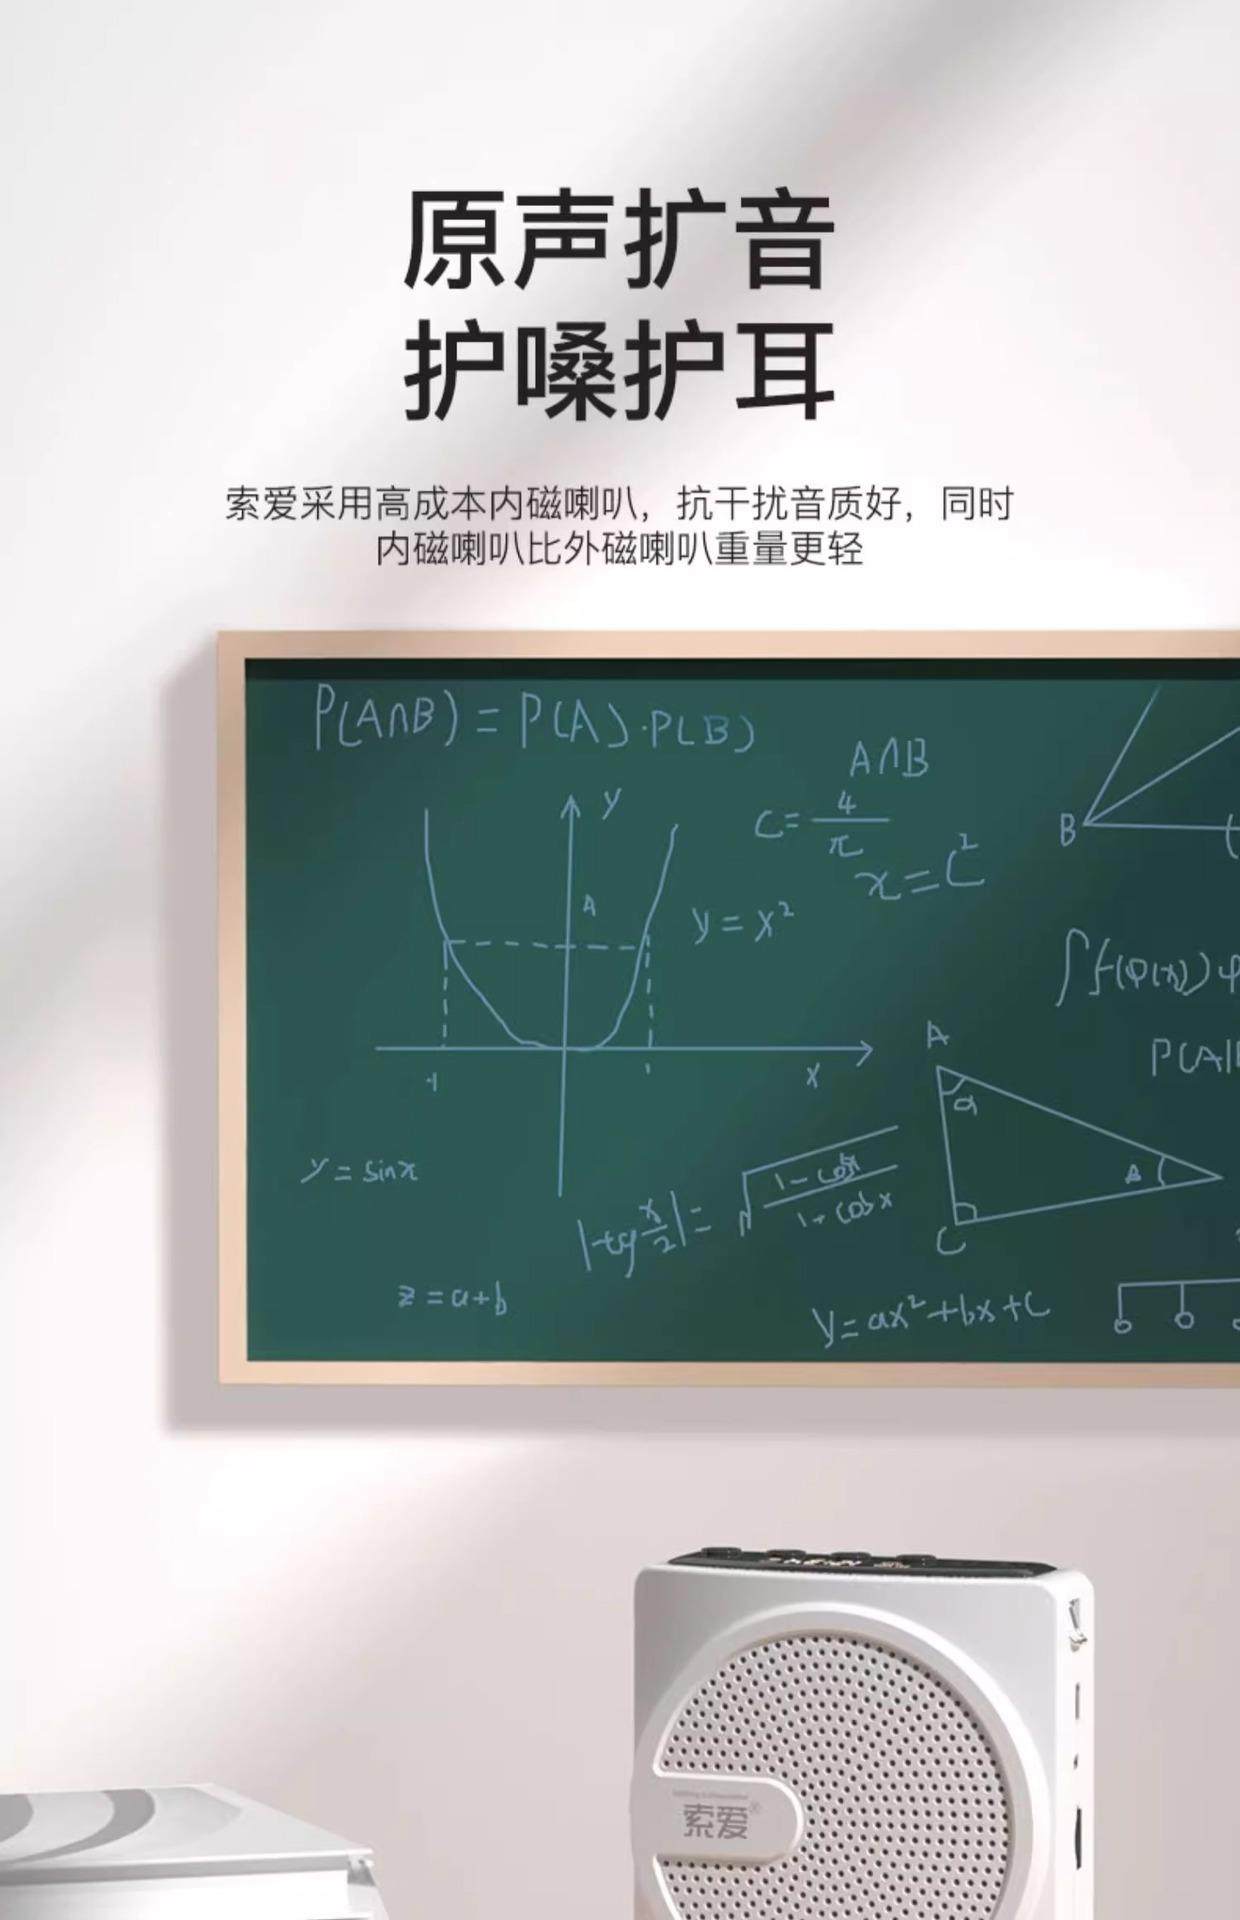 原声扩音
护嗓护耳
索爱采用高成本内磁喇叭，抗干扰音质好，同时
内磁喇叭比外磁喇叭重量更轻
P(A∩B) = P(A)·P(B)
A∩B
y
C = 4/π
B
x = C²
A
y = x²
∫f(φ(x))φ
A
P(A|
-1
1
x
α
y = sinx
|tg x/2| = √(1-cosx / 1+cosx)
C
z = a+b
y = ax²+bx+c
索爱®